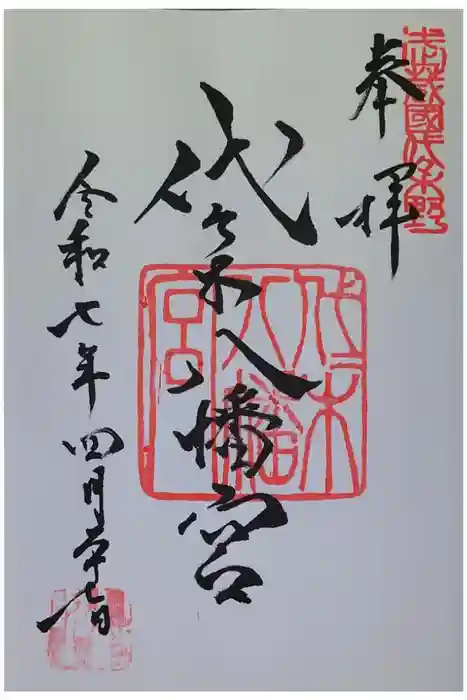 武蔵國代々木野
奉拝
代々木八幡宮
代々木
八幡
宮
令和七年四月
七日